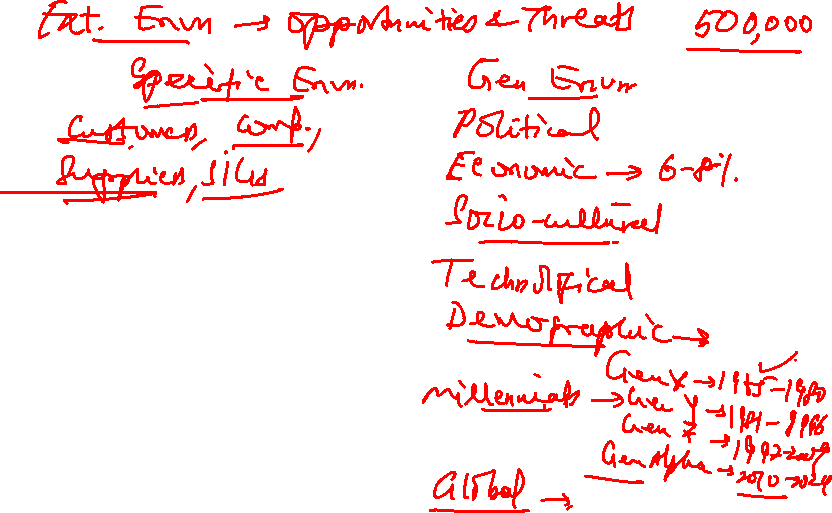 Ext. Envn → opportunities & Threats 500,000
Specific Envn.
Customers, Comp.,
Suppliers, SIGs
Gen Envn
Political
Economic → 6-8%.
Socio-cultural
Technological
Demographic →
Gen X → 1965-1980
Millennials → Gen Y → 1981-1996
Gen Z → 1997-2009
Gen Alpha → 2010-2024
Global →